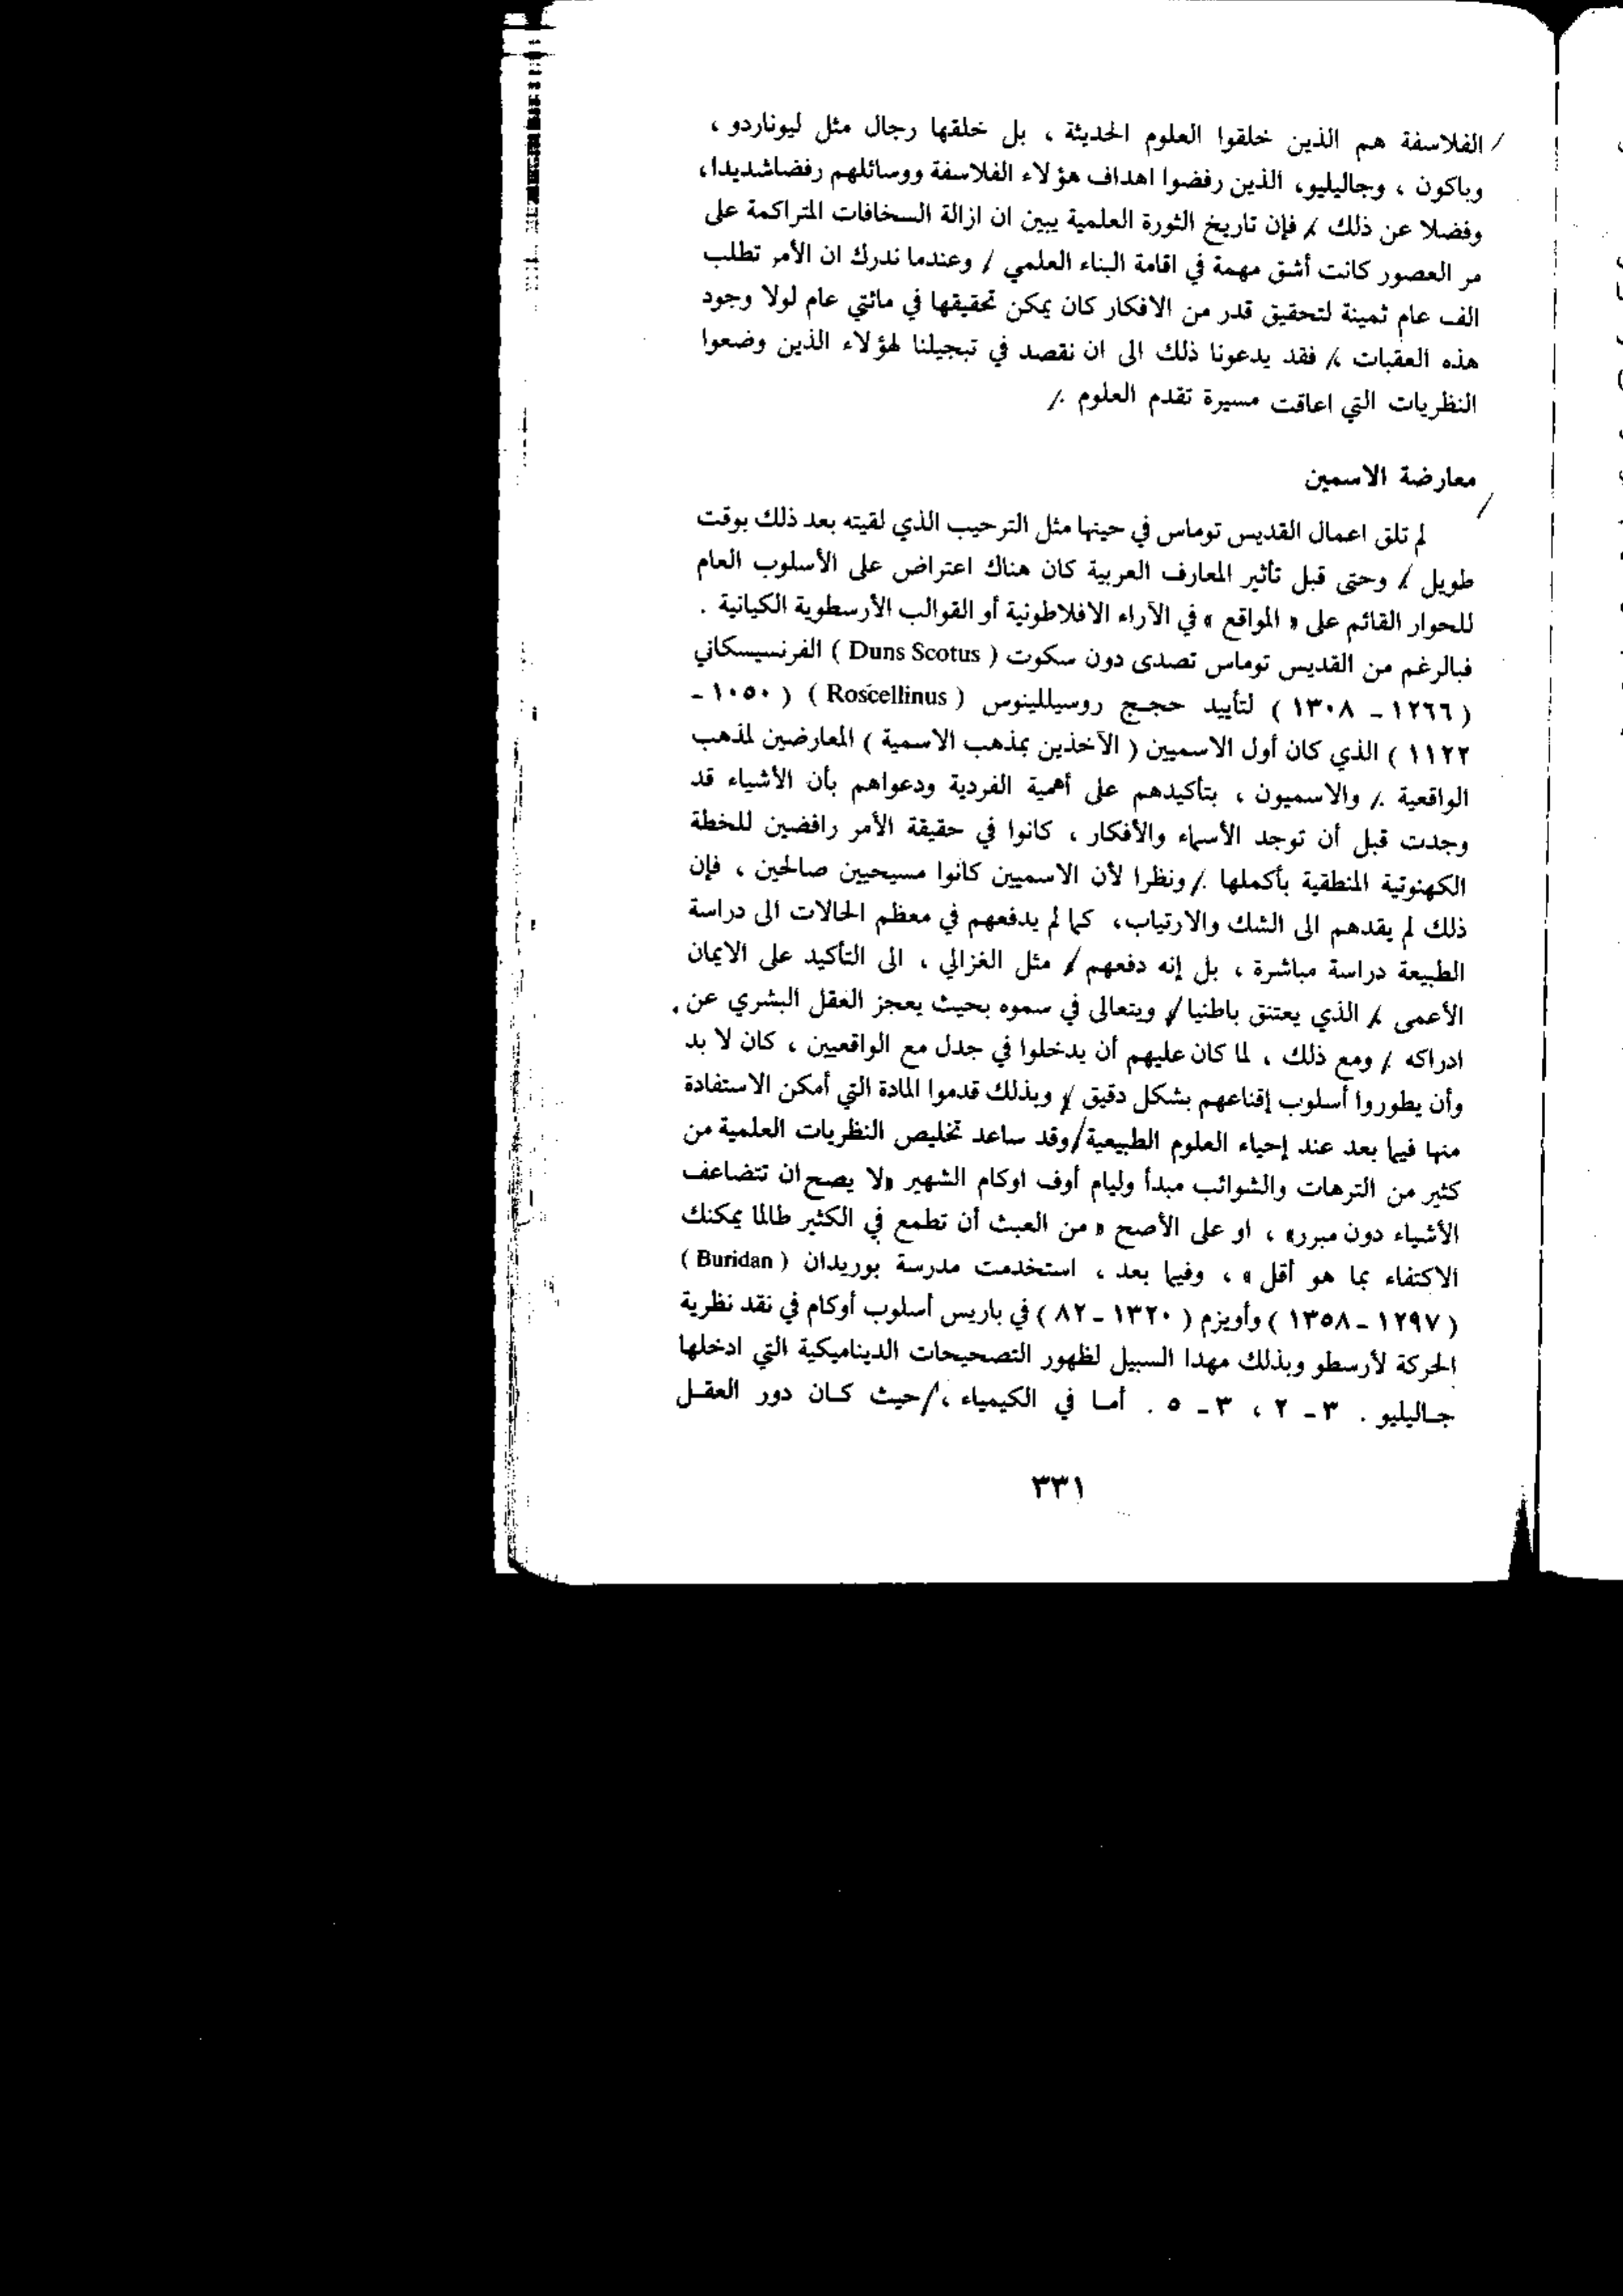 الفلاسفة هم الذين خلقوا العلوم الحديثة ، بل خلقها رجال مثل ليوناردو ،
وباكون ، وجاليليو، الذين رفضوا اهداف هؤلاء الفلاسفة ووسائلهم رفضاشديدا،
وفضلا عن ذلك ، فإن تاريخ الثورة العلمية يبين ان ازالة السخافات المتراكمة على
مر العصور كانت أشق مهمة في اقامة البناء العلمي / وعندما ندرك ان الأمر تطلب
الف عام ثمينة لتحقيق قدر من الافكار كان يمكن تحقيقها في مائتي عام لولا وجود
هذه العقبات ، فقد يدعونا ذلك الى ان نقصد في تبجيلنا لهؤلاء الذين وضعوا
النظريات التي اعاقت مسيرة تقدم العلوم .
معارضة الاسمين
لم تلق اعمال القديس توماس في حينها مثل الترحيب الذي لقيته بعد ذلك بوقت
طويل / وحتى قبل تأثير المعارف العربية كان هناك اعتراض على الأسلوب العام
للحوار القائم على « المواقع » في الآراء الافلاطونية أو القوالب الأرسطوية الكيانية .
فبالرغم من القديس توماس تصدى دون سكوت ( Duns Scotus ) الفرنسيسكاني
( ١٢٦٦ - ١٣٠٨ ) لتأييد حجج روسيللينوس ( Roscellinus ) ( ١٠٥٠ -
١١٢٢ ) الذي كان أول الاسميين ( الآخذين بمذهب الاسمية ) المعارضين لمذهب
الواقعية . والاسميون ، بتأكيدهم على أهمية الفردية ودعواهم بأن الأشياء قد
وجدت قبل أن توجد الأسماء والأفكار ، كانوا في حقيقة الأمر رافضين للخطة
الكهنوتية المنطقية بأكملها . ونظرا لأن الاسميين كانوا مسيحيين صالحين ، فإن
ذلك لم يقدهم الى الشك والارتياب، كما لم يدفعهم في معظم الحالات الى دراسة
الطبيعة دراسة مباشرة ، بل إنه دفعهم ، مثل الغزالي ، الى التأكيد على الايمان
الأعمى ، الذي يعتنق باطنيا ، ويتعالى في سموه بحيث يعجز العقل البشري عن
ادراكه / ومع ذلك ، لما كان عليهم أن يدخلوا في جدل مع الواقعيين ، كان لا بد
وأن يطوروا أسلوب إقناعهم بشكل دقيق ، وبذلك قدموا المادة التي أمكن الاستفادة
منها فيما بعد عند إحياء العلوم الطبيعية/وقد ساعد تخليص النظريات العلمية من
كثير من الترهات والشوائب مبدأ وليام أوف اوكام الشهير «لا يصح ان تتضاعف
الأشياء دون مبرر» ، او على الأصح « من العبث أن تطمع في الكثير طالما يمكنك
الاكتفاء بما هو أقل » ، وفيما بعد ، استخدمت مدرسة بوريدان ( Buridan )
( ١٢٩٧ - ١٣٥٨ ) وأويزم ( ١٣٢٠ - ٨٢ ) في باريس أسلوب أوكام في نقد نظرية
الحركة لأرسطو وبذلك مهدا السبيل لظهور التصحيحات الديناميكية التي ادخلها
جـاليليو . ٣ - ٢ ، ٣ - ٥ . أمـا في الكيمياء ،/حيث كـان دور العقـل
٣٣١